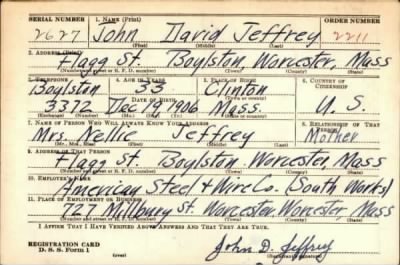 SERIAL NUMBER 1. NAME (Print) ORDER NUMBER
2627 John David Jeffrey 2211
(First) (Middle) (Last)
2. ADDRESS (Print)
Flagg St. Boylston, Worcester, Mass
(Number and street or R. F. D. number) (Town) (County) (State)
3. TELEPHONE 4. AGE IN YEARS 5. PLACE OF BIRTH 6. COUNTRY OF CITIZENSHIP
Boylston 33 Clinton
DATE OF BIRTH (Town or county)
3372 Dec 1906 Mass. U. S.
(Exchange) (Number) (Mo.) (Day) (Yr.) (State or country)
7. NAME OF PERSON WHO WILL ALWAYS KNOW YOUR ADDRESS 8. RELATIONSHIP OF THAT PERSON
Mrs. Nellie Jeffrey Mother
(Mr., Mrs., Miss) (First) (Middle) (Last)
9. ADDRESS OF THAT PERSON
Flagg St. Boylston Worcester, Mass
(Number and street or R. F. D. number) (Town) (County) (State)
10. EMPLOYER'S NAME
American Steel & Wire Co. (South Works)
11. PLACE OF EMPLOYMENT OR BUSINESS
727 Millbury St. Worcester, Worcester, Mass
(Number and street or R. F. D. number) (Town) (County) (State)
I AFFIRM THAT I HAVE VERIFIED ABOVE ANSWERS AND THAT THEY ARE TRUE.
REGISTRATION CARD
D. S. S. Form 1 John D. Jeffrey